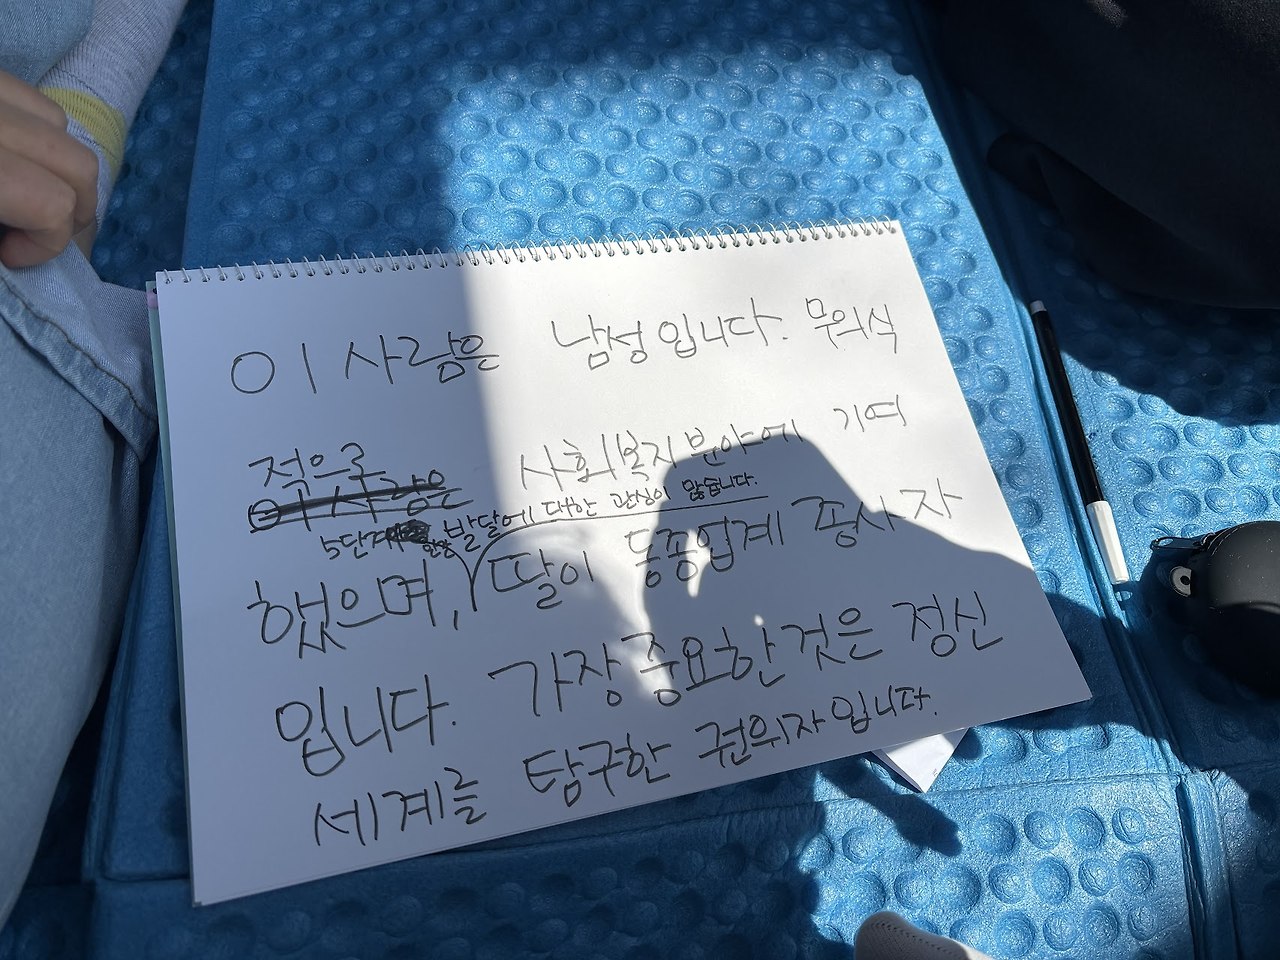 이 사람은 남성입니다. 무의식
적으로 사회복지분야에 기여
5단계 발달에 대한 관심이 많습니다.
했으며, 딸이 동종업계 종사자
입니다. 가장 중요한 것은 정신
세계를 탐구한 권위자입니다.